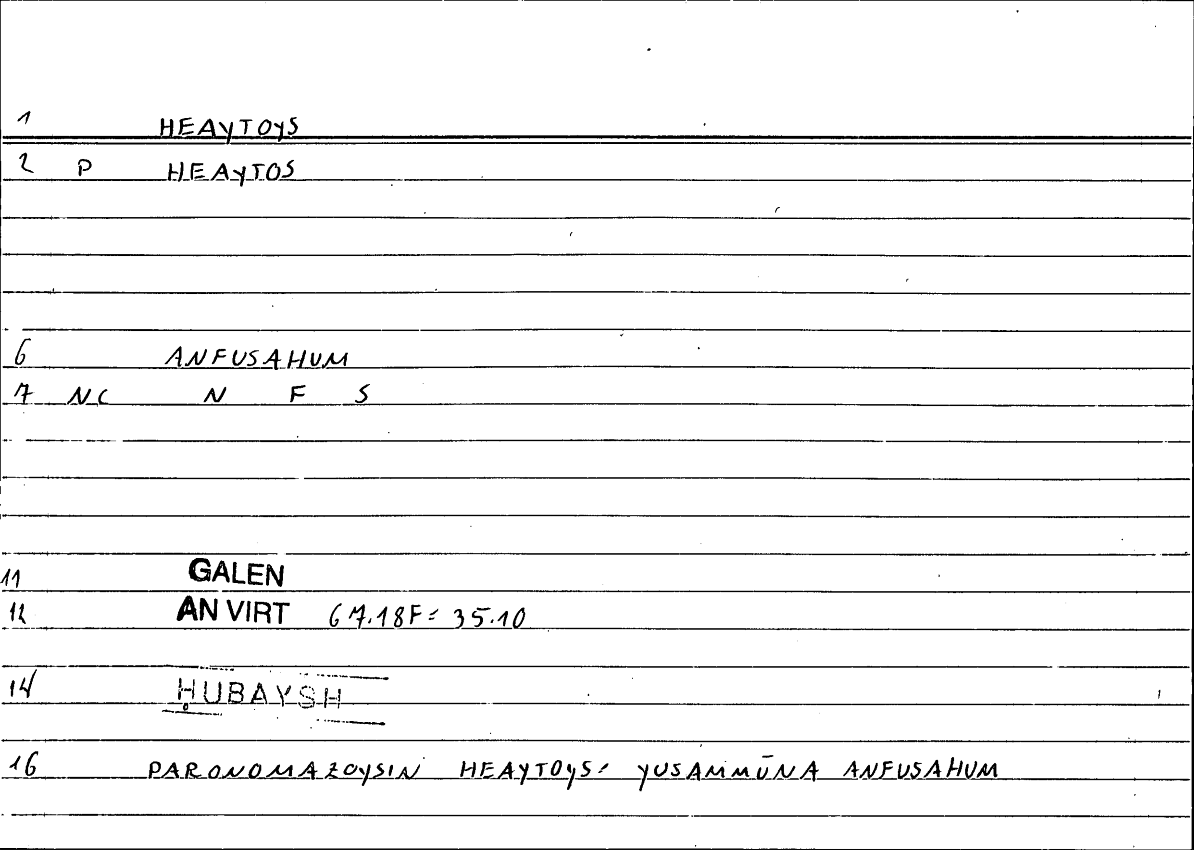 1 HEAYTOYS
2 P HEAYTOS
6 ANFUSAHUM
7 NC N F S
11 GALEN
12 AN VIRT 67.18F = 35.10
14 ḤUBAYSH
16 PARONOMAZOYSIN HEAYTOYS = YUSAMMŪNA ANFUSAHUM